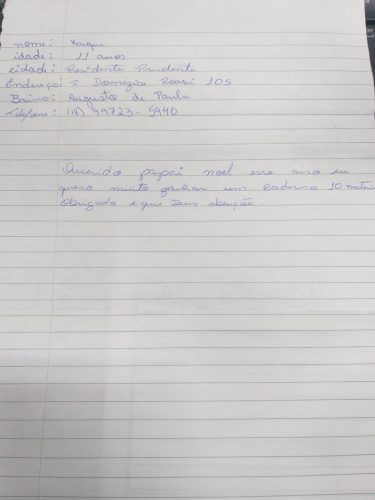 nome: Xaiqui
idade: 11 anos
cidade: Presidente Prudente
Endereço: R Domingia Rossi 105
Bairro: Augusto de Paula
Telefone: (18) 99723-5940
Querido papai noel esse ano eu
quero muito ganhar um caderno 10 matéri
Obrigado e que Deus abençõe.